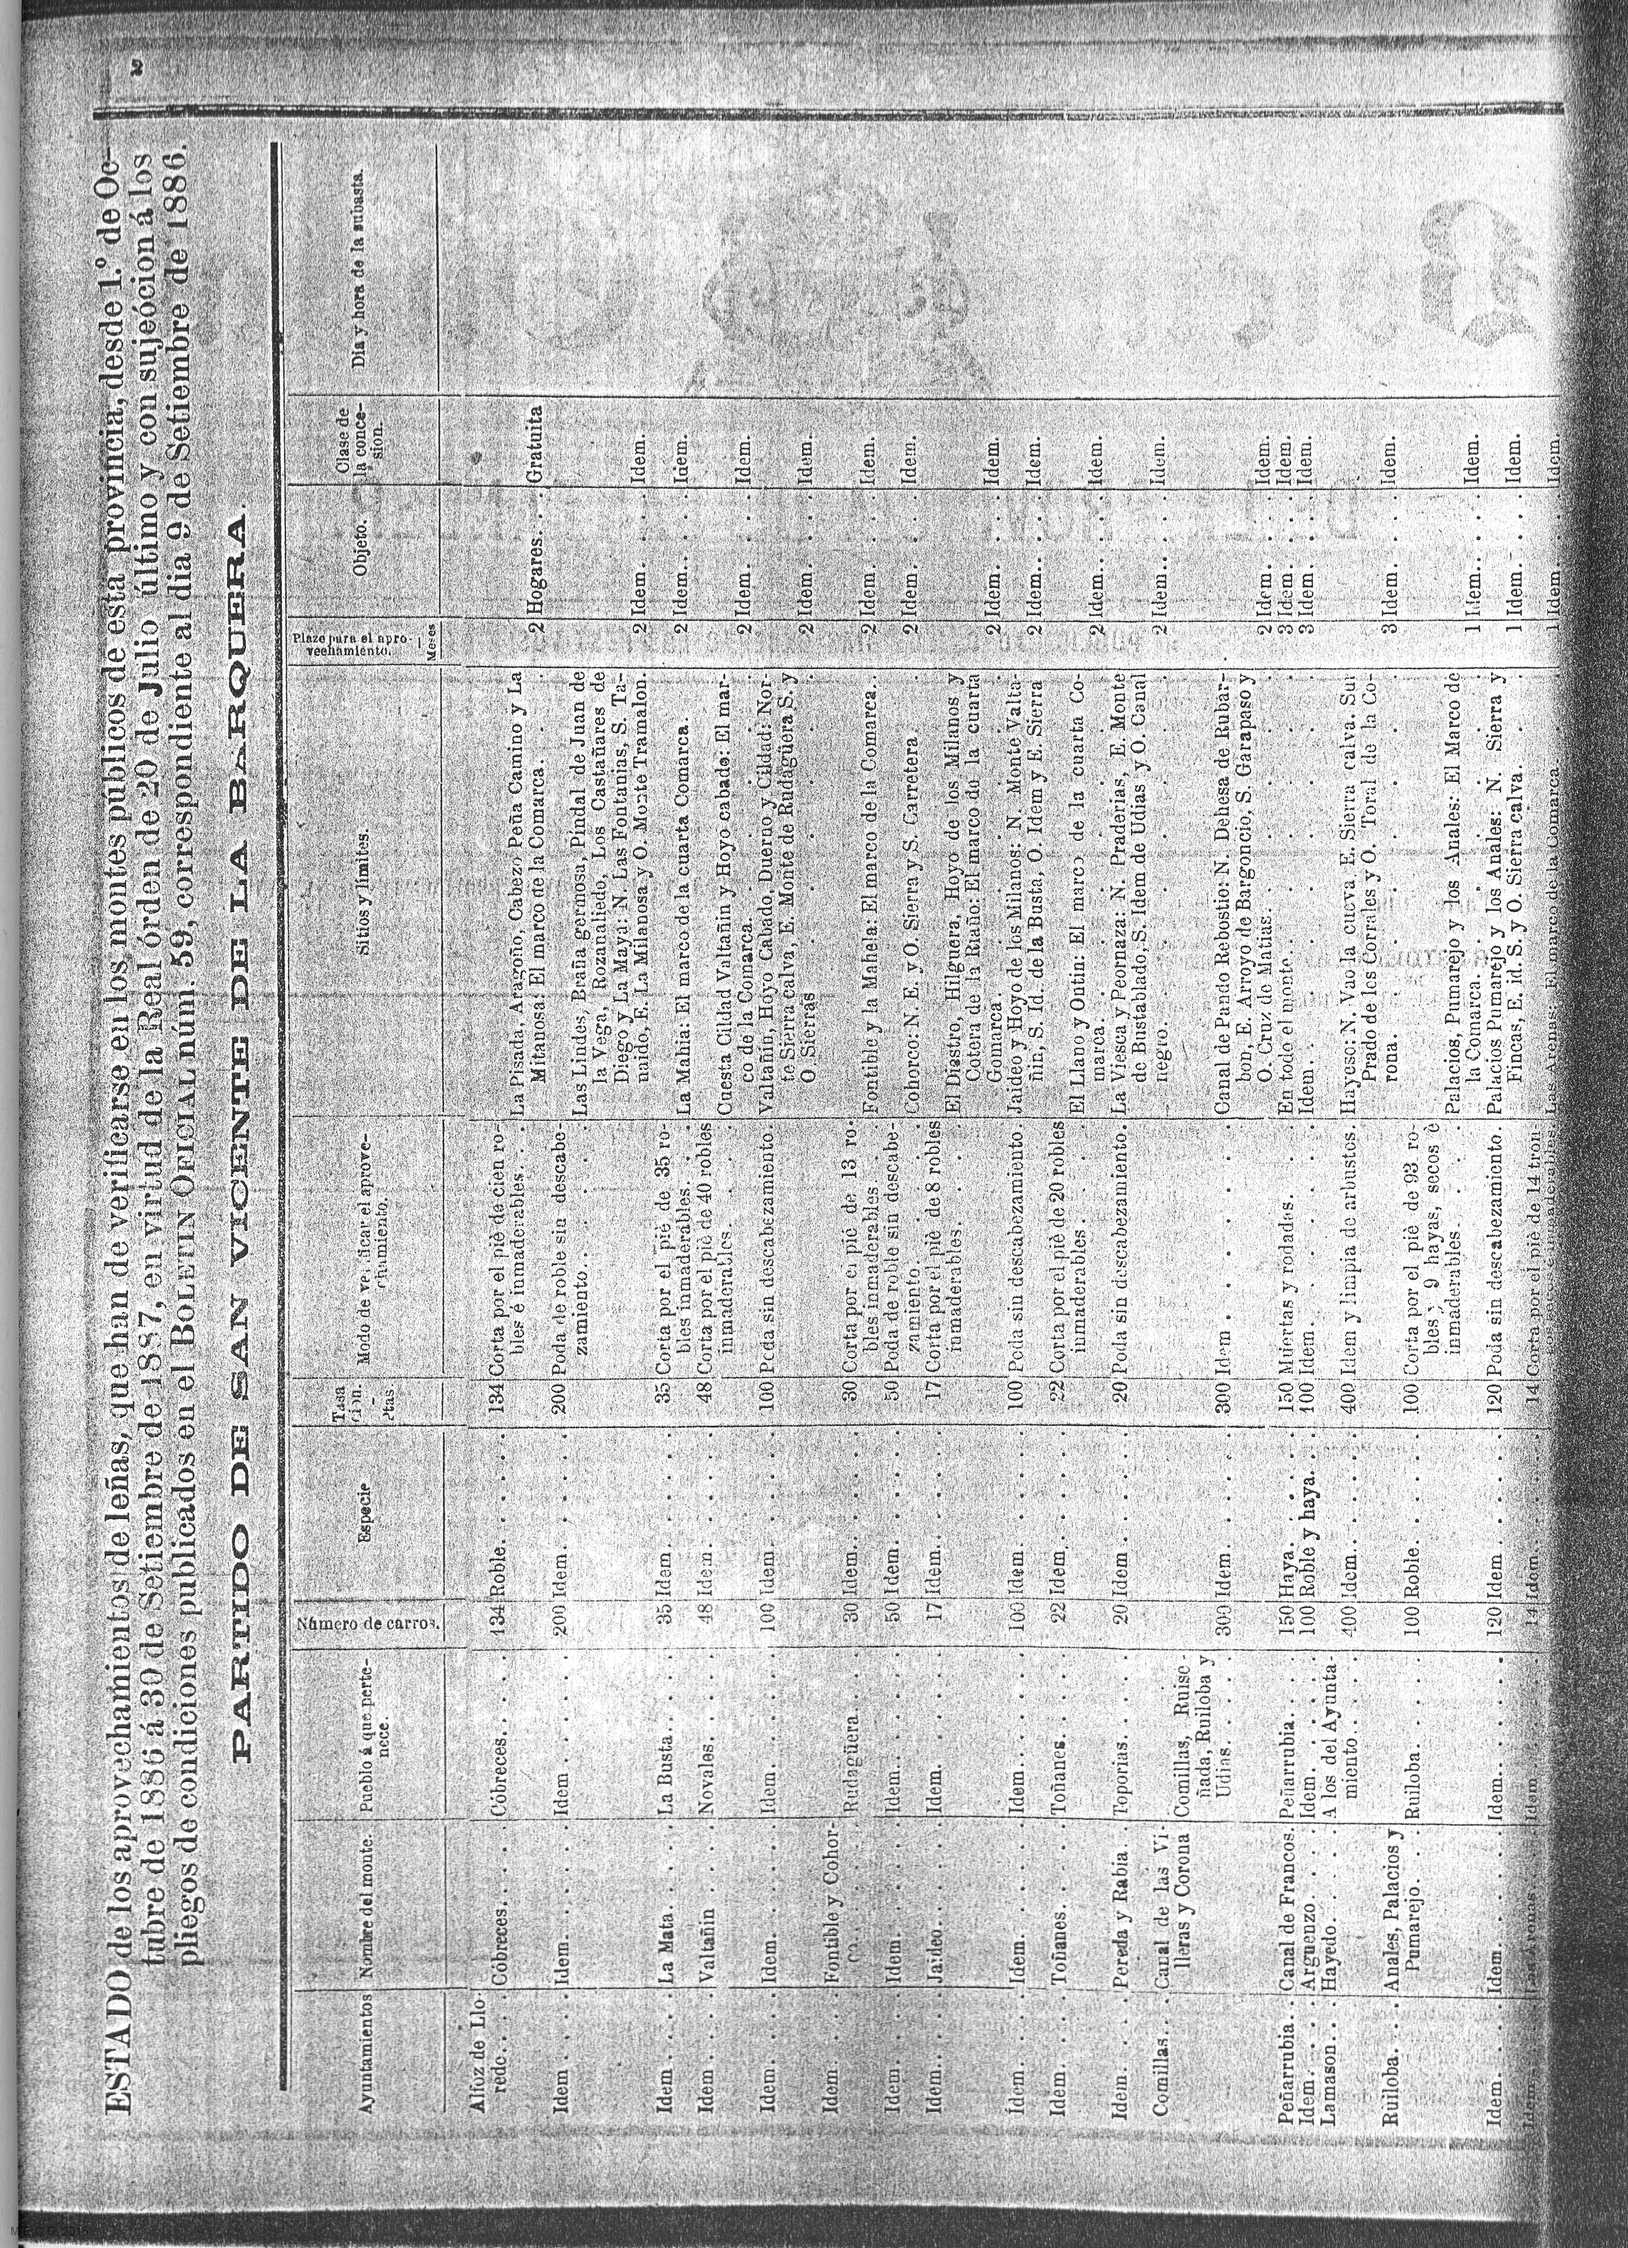 2
ESTADO de los aprovechamientos de leñas, que han de verificarse en los montes públicos de esta provincia, desde 1.º de Oc-
tubre de 1886 á 30 de Setiembre de 1887, en virtud de la Real órden de 20 de Julio último y con sujeócion á los
pliegos de condiciones publicados en el BOLETIN OFICIAL núm. 59, correspondiente al dia 9 de Setiembre de 1886.
PARTIDO DE SAN VICENTE DE LA BARQUERA.
Ayuntamientos Nombre del monte. Pueblo á que perte-nece. Número de carros. Especie Tasa cion. - Modo de verificar el aprove-chamiento. Sitios y limites. Plazo para el apro-vechamiento. Meses Objeto. Clase de la conce-sion. Dia y hora de la subasta.
Alfoz de Llo-
redo. Cóbreces. Cóbreces. 134 Roble. 134 Corta por el piè de cien ro-
bles é inmaderables. La Pisada, Aragoño, Cabezo Peña Camino y La
Mitanosa: El marco de la Comarca. 2 Hogares. Gratuita
Idem Idem. Idem 200 Idem. 200 Poda de roble sin descabe-
zamiento. Las Lindes, Braña germosa, Pindal de Juan de
la Vega, Rozanaliedo, Los Castañares de
Diego y La Maya: N. Las Fontanias, S. Ta-
naido, E. La Milanosa y O. Monte Tramalon. 2 Idem. Idem.
Idem La Mata. La Busta. 35 Idem 35 Corta por el piè de 35 ro-
bles inmaderables. La Mahia: El marco de la cuarta Comarca. 2 Idem. Idem.
Idem Valtañin Novales. 48 Idem. 48 Corta por el piè de 40 robles
inmaderables. Cuesta Cildad Valtañin y Hoyo cabado: El mar-
co de la Comarca. 2 Idem. Idem.
Idem. Idem. Idem. 100 Idem. 100 Poda sin descabezamiento. Valtañin, Hoyo Cabado, Duerno y Cildad: Nor-
te Sierra calva, E. Monte de Rudagüera S. y
O. Sierras 2 Idem. Idem.
Idem Fontible y Cohor-
co. Rudagüera. 30 Idem. 30 Corta por el piè de 13 ro-
bles inmaderables Fontible y la Mahela: El marco de la Comarca. 2 Idem. Idem.
Idem. Idem. Idem. 50 Idem. 50 Poda de roble sin descabe-
zamiento. Cohorco: N. E. y O. Sierra y S. Carretera. 2 Idem. Idem.
Idem. Jaideo. Idem. 17 Idem. 17 Corta por el piè de 8 robles
inmaderables. El Diestro, Hilguera, Hoyo de los Milanos y
Cotera de la Riaño: El marco de la cuarta
Comarca. 2 Idem. Idem.
Idem. Idem. Idem. 100 Idem 100 Poda sin descabezamiento. Jaideo y Hoyo de los Milanos: N. Monte Valta-
ñin, S. Id. de la Busta, O. Idem y E. Sierra 2 Idem. Idem.
Idem. Toñanes. Toñanes. 22 Idem. 22 Corta por el piè de 20 robles
inmaderables. El Llano y Outin: El marco de la cuarta Co-
marca. 2 Idem. Idem.
Idem. Pereda y Rabia. Toporias. 20 Idem 20 Poda sin descabezamiento. La Viesca y Peornaza: N. Praderias, E. Monte
de Bustablado, S. Idem de Udias y O. Canal
negro. 2 Idem. Idem.
Comillas. Canal de las Vi-
lleras y Corona Comillas, Ruise-
ñada, Ruiloba y
Udias. 300 Idem. 300 Idem. Canal de Pando Rebostio: N. Dehesa de Rubar-
bon, E. Arroyo de Bargoncio, S. Garapaso y
O. Cruz de Matias. 2 Idem. Idem.
Peñarrubia. Canal de Francos. Peñarrubia. 150 Haya. 150 Muertas y rodadas. En todo el monte. 3 Idem. Idem.
Idem. Arguenzo. Idem. 100 Roble y haya. 100 Idem. Idem. 3 Idem. Idem.
Lamason. Hayedo. A los del Ayunta-
miento. 400 Idem. 400 Idem y limpia de arbustos. Hayeso: N. Vao la cueva, E. Sierra calva. Sur
Prado de los Corrales y O. Toral de la Co-
rona. 3 Idem. Idem.
Ruiloba. Anales, Palacios y
Pumarejo. Ruiloba. 100 Roble. 100 Corta por el piè de 93 ro-
bles y 9 hayas, secos è
inmaderables. Palacios, Pumarejo y los Anales: El Marco de
la Comarca. 1 Idem. Idem.
Idem. Idem. Idem. 120 Idem 120 Poda sin descabezamiento. Palacios Pumarejo y los Anales: N. Sierra y
Fincas, E. id. S. y O. Sierra calva. 1 Idem. Idem.
Idem. Las Arenas. Idem 14 Idem. 14 Corta por el piè de 14 tron-
Las Arenas: El marco de la Comarca. 1 Idem. Idem.